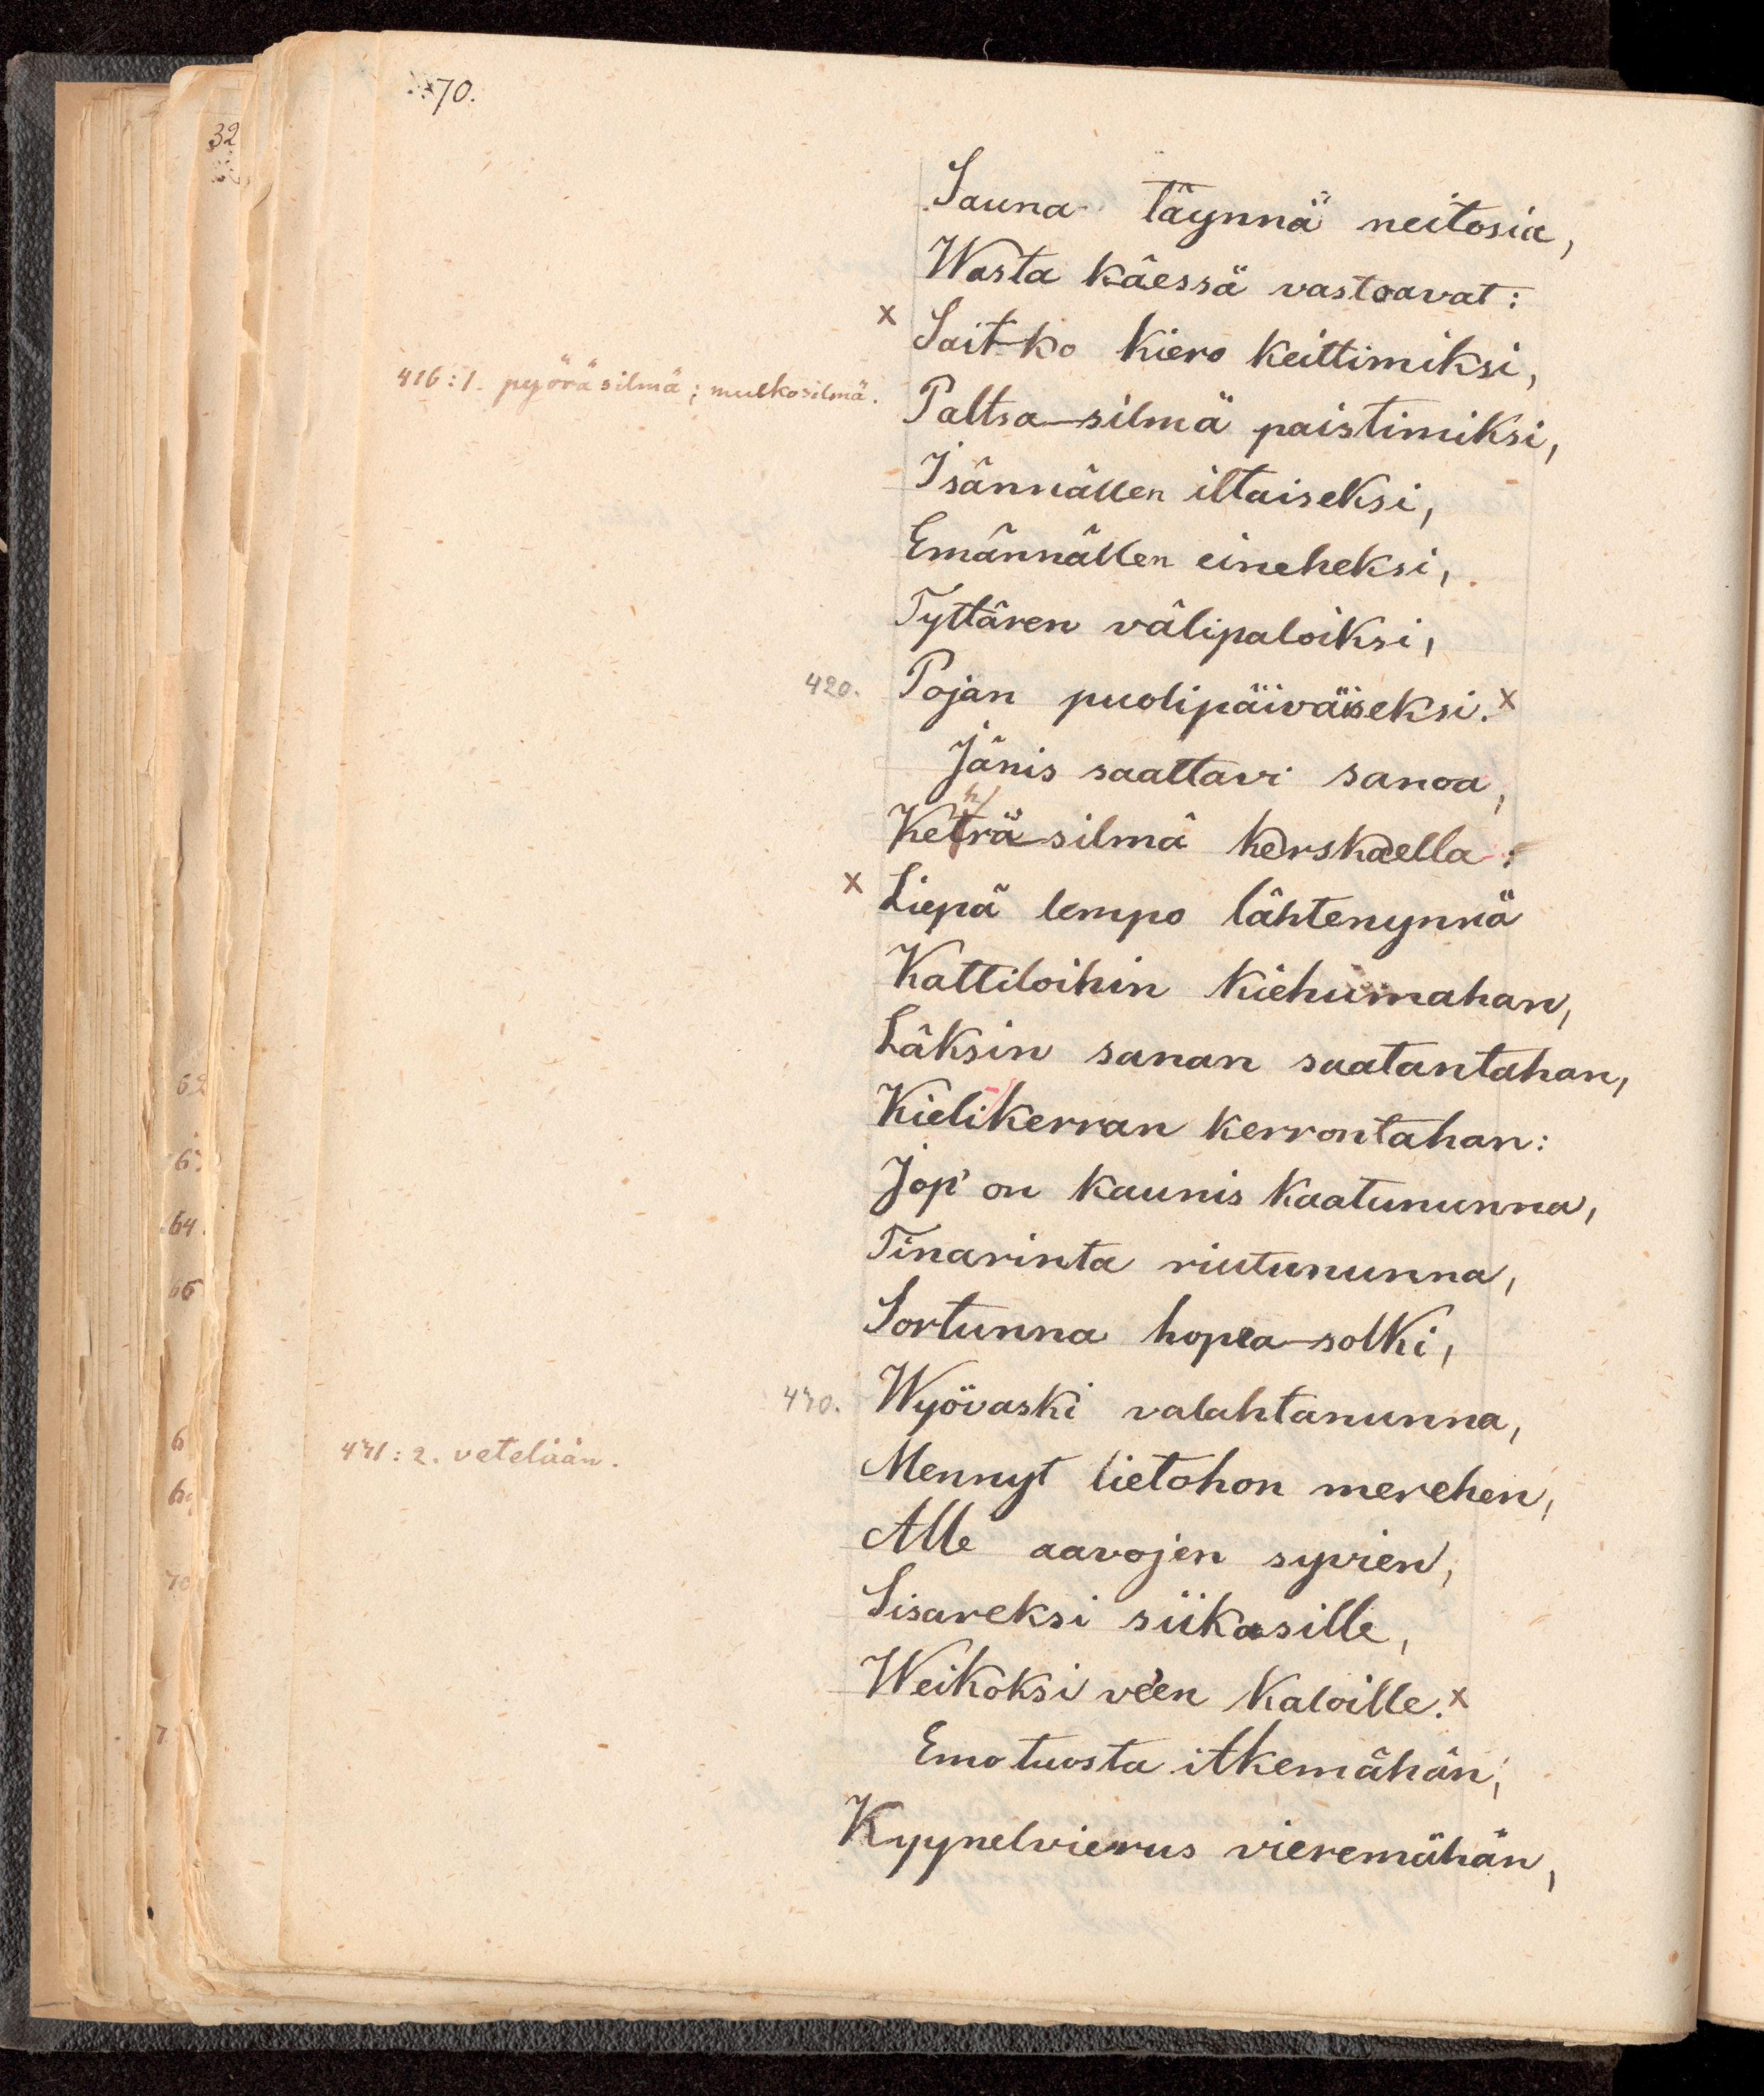 70.
32
Sauna täynnä neitosia,
Wasta käessä vastoavat:
x Sait-ko kiero keittimiksi,
416:1. pyöräsilmä; mulkosilmä.
Paltsa-silmä paistimiksi,
Isännällen iltaiseksi,
Emännällen eineheksi,
Tyttären välipaloiksi,
420. Pojan puolipäiväiseksi. x
Jänis saattavi sanoa,
Kehräsilmä kerskaella:
x Liepä lempo lähtenynnä
Kattiloihin kiehumahan,
Läksin sanan saatantahan,
Kielikerran kerrontahan:
Jop' on kaunis kaatununna,
Tinarinta riutununna,
Sortunna hopea-solki,
430. Wyövaski valahtanunna,
431:2. vetelään.
Mennyt lietohon merehen,
Alle aavojen syvien,
Sisareksi siikasille,
Weikoksi ve'en kaloille. x
Emo tuosta itkemähän,
Kyynelvierus vieremähän,
62
63
64.
66
6
69
70
7